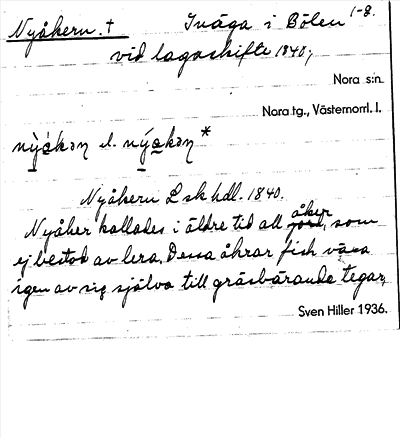 Nyåkern. † Inäga i Bölen 1-8.
vid lagaskifte 1840,
Nora s:n.
Nora tg., Västernorrl. l.
el.
Nyåkern Lsk hdl. 1840.
Nyåker kallades i äldre tid all åker, som
ej bestod av lera. Dessa åkrar fick växa
igen av sig själva till gräsbärande tegar,
Sven Hiller 1936.